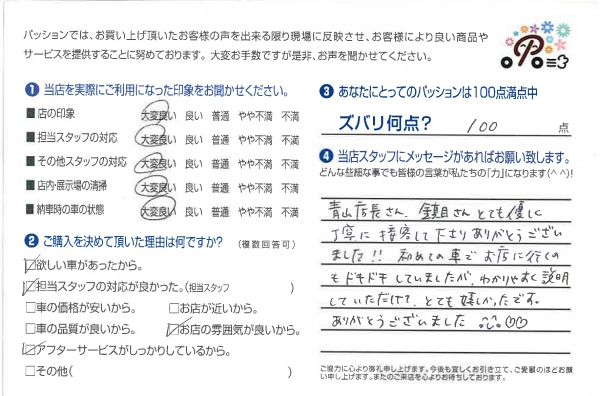 パッションでは、お買い上げ頂いたお客様の声を出来る限り現場に反映させ、お客様により良い商品や
サービスを提供することに努めております。 大変お手数ですが是非、お声を聞かせてください。
❶ 当店を実際にご利用になった印象をお聞かせください。
■店の印象 大変良い 良い 普通 やや不満 不満
■担当スタッフの対応 大変良い 良い 普通 やや不満 不満
■その他スタッフの対応 大変良い 良い 普通 やや不満 不満
■店内・展示場の清掃 大変良い 良い 普通 やや不満 不満
■納車時の車の状態 大変良い 良い 普通 やや不満 不満
❷ ご購入を決めて頂いた理由は何ですか? (複数回答可)
☑欲しい車があったから。
☑担当スタッフの対応が良かった。(担当スタッフ )
□車の価格が安いから。 □お店が近いから。
□車の品質が良いから。 ☑お店の雰囲気が良いから。
☑アフターサービスがしっかりしているから。
□その他( )
❸ あなたにとってのパッションは100点満点中
ズバリ何点? 100 点
❹ 当店スタッフにメッセージがあればお願い致します。
どんな些細な事でも皆様の言葉が私たちの「力」になります(^^)!
青山店長さん、鎮目さんとても優しく
丁寧に接客して下さりありがとうござい
ました!! 初めての車でお店に行くの
もドキドキしていましたが、わかりやすく説明
していただけて、とても嬉しかったです。
ありがとうございました
ご協力に心より御礼申し上げます。今後も宜しくお引き立て、ご愛顧のほどお願
い申し上げます。またのご来店を心よりお待ちしております。